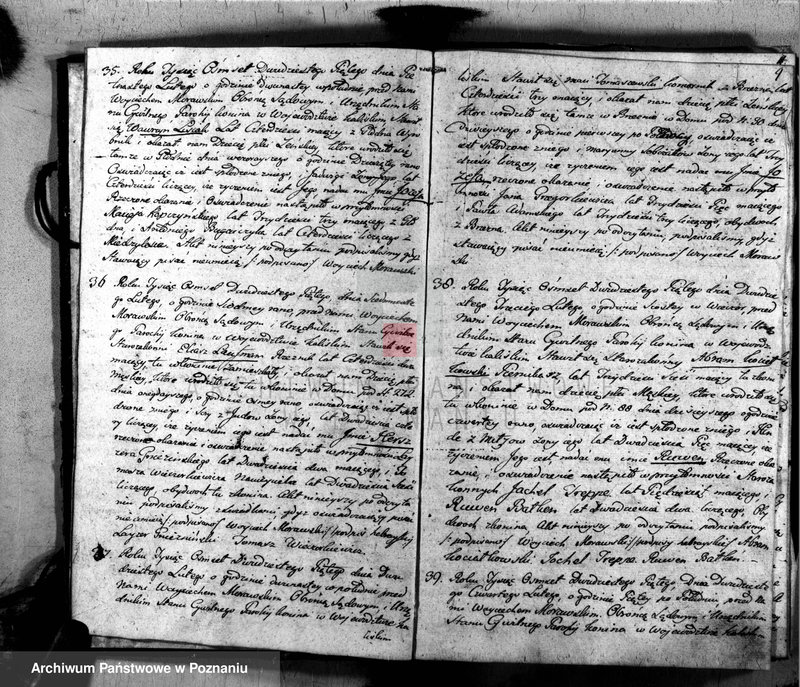 35. Roku Tysiąc Ośmset Dwudziestego Piątego dnia Pie-
rwszego Lutego o godzinie Dwunastej w południe, przed Nami
Woyciechem Morawskim Obrońcą Sądowym i Urzędnikiem Sta-
nu Cywilnego Parochij konina w Woyewodztwie kaliskim Stawił
się Wawrzyn Lat Czterdzieści maiący z
i okazał nam Dziecię płci Zeńskiej, które urodziło się
tamże w dnia wczorayszego o godzinie Dziesiątej rano
Oswiadczaiąc iż iest spłodzone zniego, i Jadwigi Zony jego lat
Czterdzieści liczącey, iż życzeniem jego iest nadać mu Imie Józefa
Rzeczone okazanie i Oswiadczenie nastąpiło w przytomności
Macieja Kopczyńskiego lat Trzydzieści trzy maiącego, z
i Antoniego lat Czterdzieści liczącego z
Międzylesia. Akt ninieyszy po odczytaniu podpisalismy gdyż
Stawaiący pisać nieumieią /: podpisano/ Woyciech Morawski
36 Roku Tysiąc Ośmset Dwudziestego Piątego, dnia Siedmnaste-
go Lutego, o godzinie Siodmey rano, przed Nami Woyciechem
Morawskim Obrońcą Sądowym i Urzędnikiem Stanu Cywilne-
go Parochij konina w Woyewodztwie kaliskim Stawił się
Starozakonny Eliasz Lat Czterdzieści dwa
maiący, tu w koninie zamieszkały, i okazał nam Dziecię płci
Męskiey, które urodziło się tu w koninie w Domu pod
dnia o godzinie Osmey rano oswiadczaiąc iż iest spło-
dzone zniego i z Zony jego, lat Dwadzieścia
ry liczącey, iż życzeniem jego iest nadać mu Imie Hersz
rzeczone okazanie i oswiadczenie nastąpiło w przytomności
lat Dwadzieścia dwa maiącego, i To-
masza Wieżorkiewicza Nauczyciela lat Dwadzieścia Sześć
liczącego, obydwóch tu z konina. Akt ninieyszy po odczyta-
niu podpisalismy z gdyż oswiadczaiący pisać
nieumieią/ podpisano/ Woyciech Morawski/ podpis hebrayski/
Tomasz Wieżorkiewicz
37 Roku Tysiąc Ośmset Dwudziestego Piątego dnia Dwu-
dziestego Lutego o godzinie dwunastey w południe przed
Nami Woyciechem Morawskim Obrońcą Sądowym, i Urzę-
dnikiem Stanu Cywilnego Parochij konina w Woyewodztwie ka-
liskim
liskim Stawił się Tomaszewski komornik z Brzezna, lat
Czterdzieści trzy maiący, i okazał nam dziecię płci Zenskiey
które urodziło się tamże w Brzeznie w Domu pod N. 30 dnia
Dzisieyszego o godzinie pierwszey po Północy, oswiadczaiąc iż
iest spłodzone zniego i Maryanny Zony iego lat Trzy-
dzieści liczącey, iż życzeniem iego iest nadać mu Imie Jó-
zefa, rzeczone okazanie, i oswiadczenie nastąpiło w przyto-
mności Jana Grzegorkiewicza lat Trzydzieści Pięć maiącego
i Pawła lat Trzydzieści trzy liczącego, obydwóch
z Brzezna. Akt ninieyszy po odczytaniu, podpisalismy, gdyż
stawaiący pisać nieumieią. /: podpisano/ Woyciech Moraw-
ski
38. Roku Tysiąc Ośmset Dwudziestego Piątego dnia Dwudzie-
stego Trzeciego Lutego o godzinie Szóstey w Wieczór, przed
Nami Woyciechem Morawskim Obrońcą Sądowym, i Urzę-
dnikiem Stanu Cywilnego Parochij konina w Woyewodz-
twie kaliskim Stawił się Starozakonny Abram kociat-
kowski lat Trzydzieści Sześć maiący tu w koni-
nie, i okazał nam dziecię płci Męskiey, które urodziło się
tu w koninie w Domu pod N. 88 dnia dzisieyszego o godzinie
czwartey rano, oswiadczaiąc iż iest spłodzone zniego, i
z Zony iego lat Dwadzieścia Pięć maiącey, iż
życzeniem Jego iest nadać mu imie Ruwen, Rzeczone oka-
zanie, i oswiadczenie nastąpiło w przytomności Staroza-
konnych Jochel Treppe lat Piędziesiąt maiącego, i
Ruwen Batken lat Dwadzieścia dwa liczącego Oby-
dwóch z konina. Akt ninieyszy po odczytaniu podpisalismy
/: podpisano/ Woyciech Morawski/ podpisy hebrayskie/ Abram
kociatkowski. Jochel Treppe. Ruwen Batken
39. Roku Tysiąc Ośmset Dwudziestego Piątego Dnia Dwudzieste-
go Czwartego Lutego, o godzinie Piątey po Południu, przed Na-
mi Woyciechem Morawskim Obrońcą Sądowym, i Urzędnikiem
Stanu Cywilnego Parochij konina w Woyewodztwie kaliskim
Archiwum Państwowe w Poznaniu